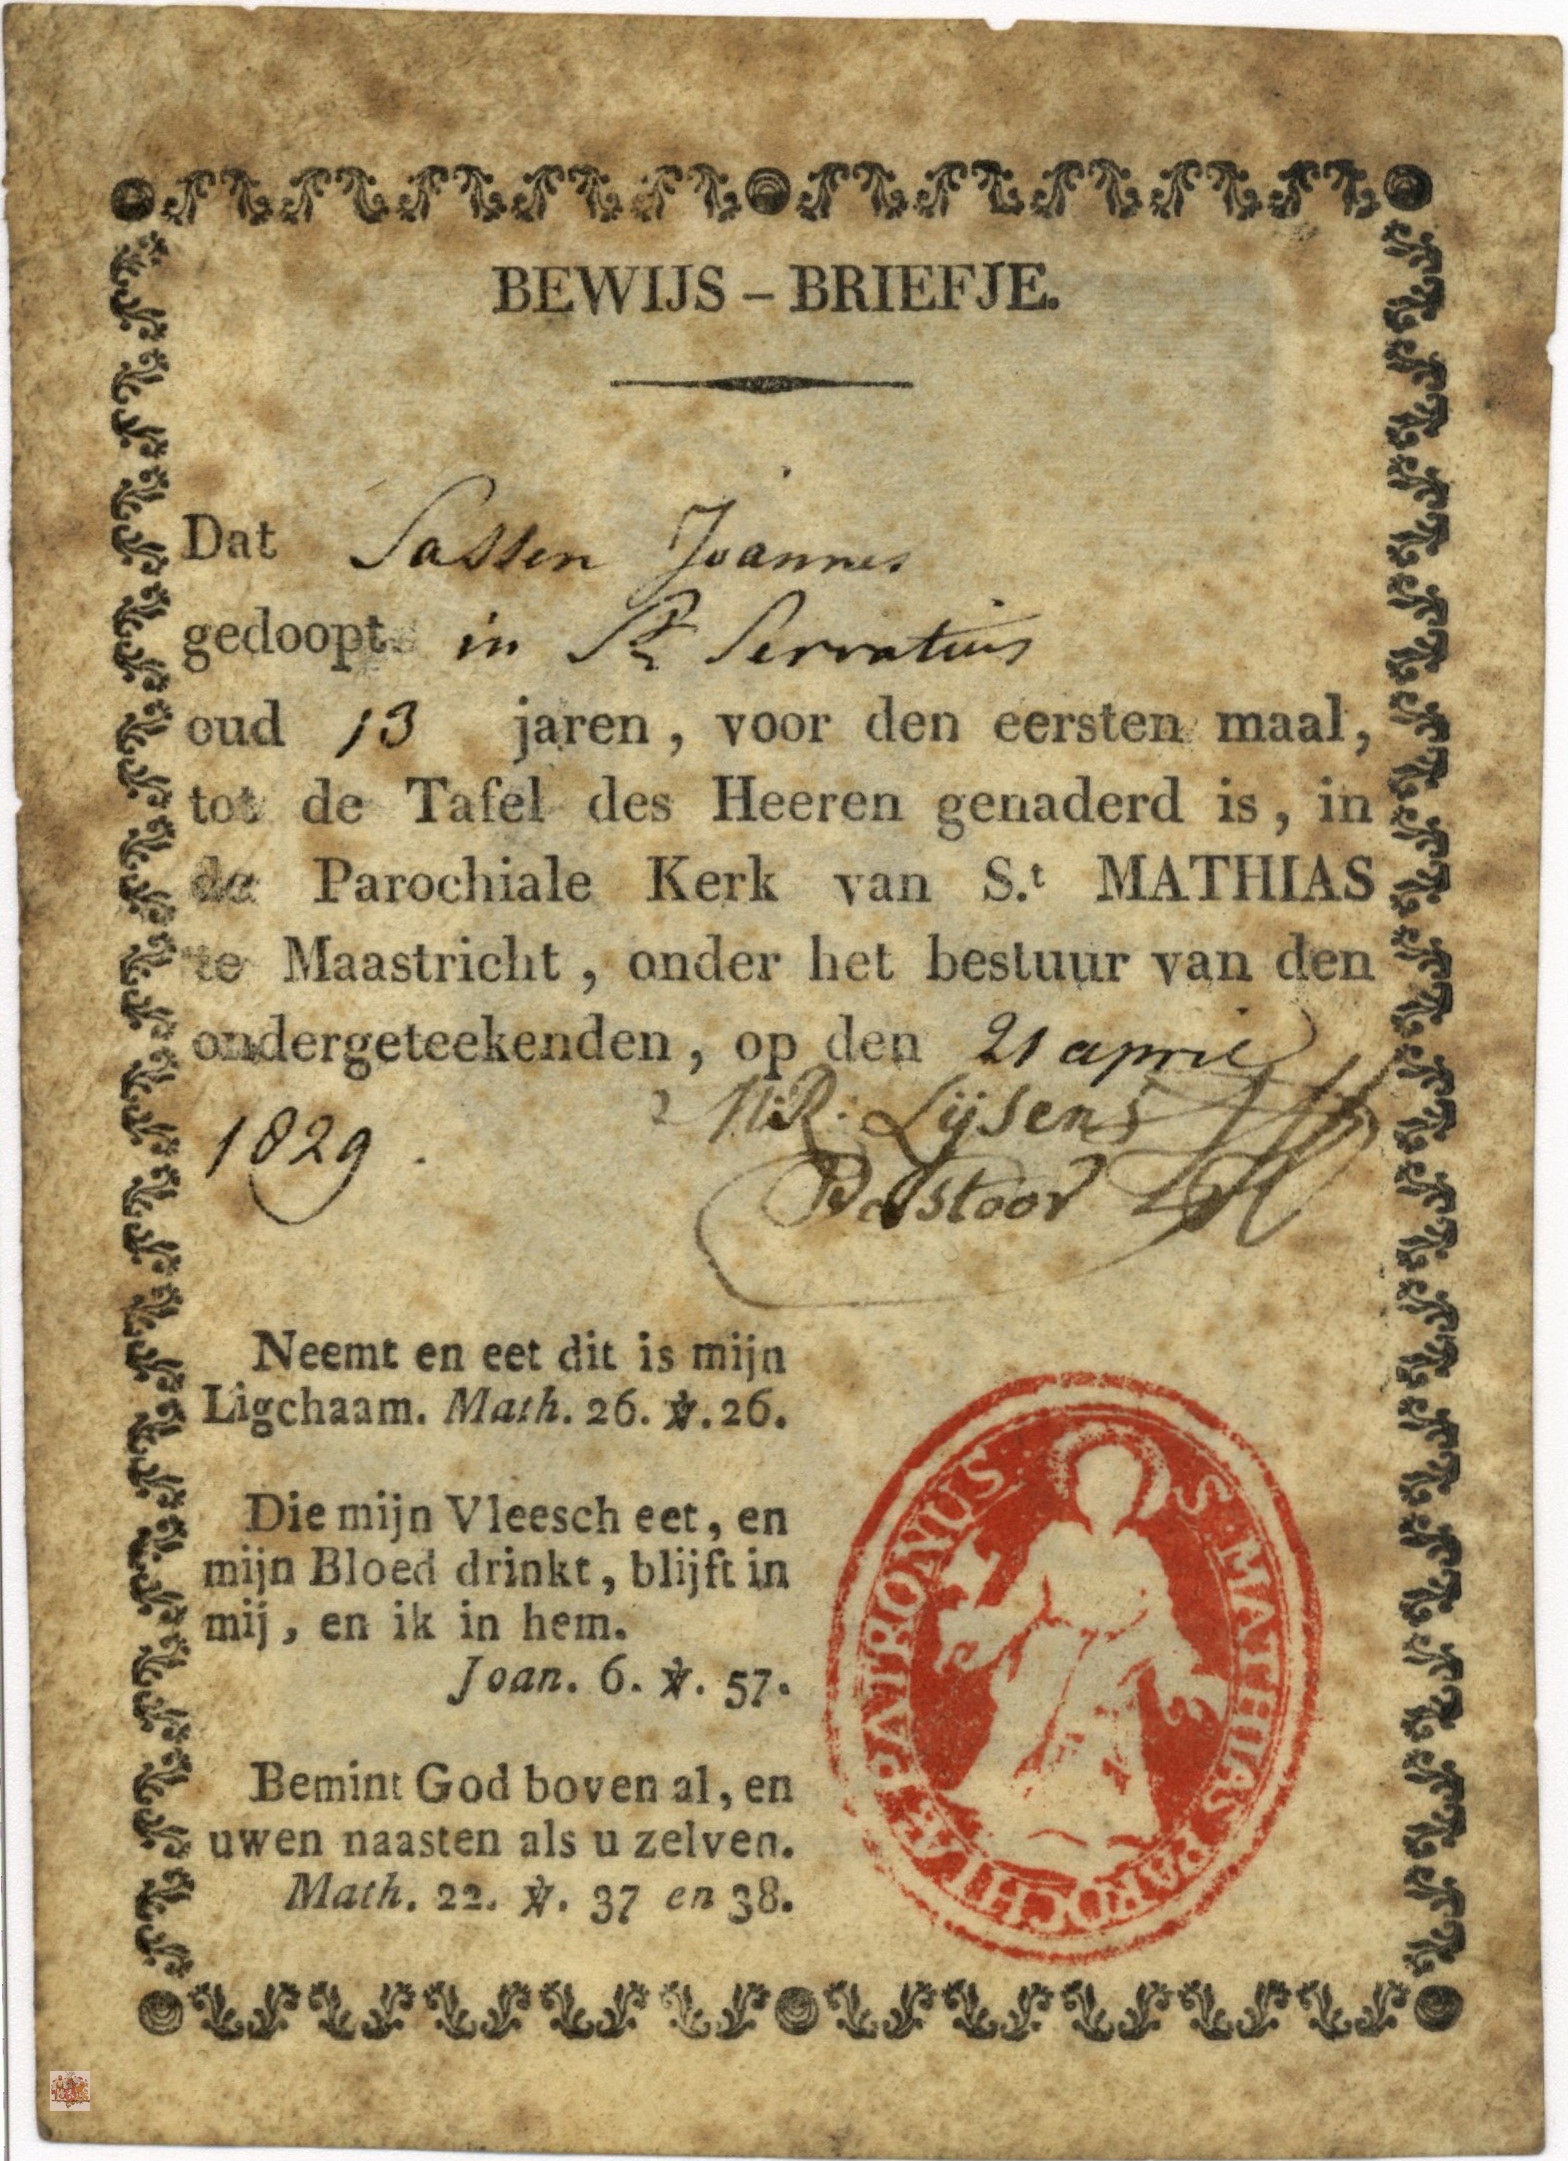 BEWIJS – BRIEFJE.
Dat Sassen Joannes
gedoopt in St Servatius
oud 13 jaren, voor den eersten maal,
tot de Tafel des Heeren genaderd is, in
de Parochiale Kerk van S.t MATHIAS
te Maastricht, onder het bestuur van den
ondergeteekenden, op den 21 april
1829. Lijsens
Pastoor
Neemt en eet dit is mijn
Ligchaam. Math. 26. ℣. 26.
Die mijn Vleesch eet, en
mijn Bloed drinkt, blijft in
mij, en ik in hem.
Joan. 6. ℣. 57.
Bemint God boven al, en
uwen naasten als u zelven.
Math. 22. ℣. 37 en 38.
S. MATHIAS PAROCHIÆ PATRONUS